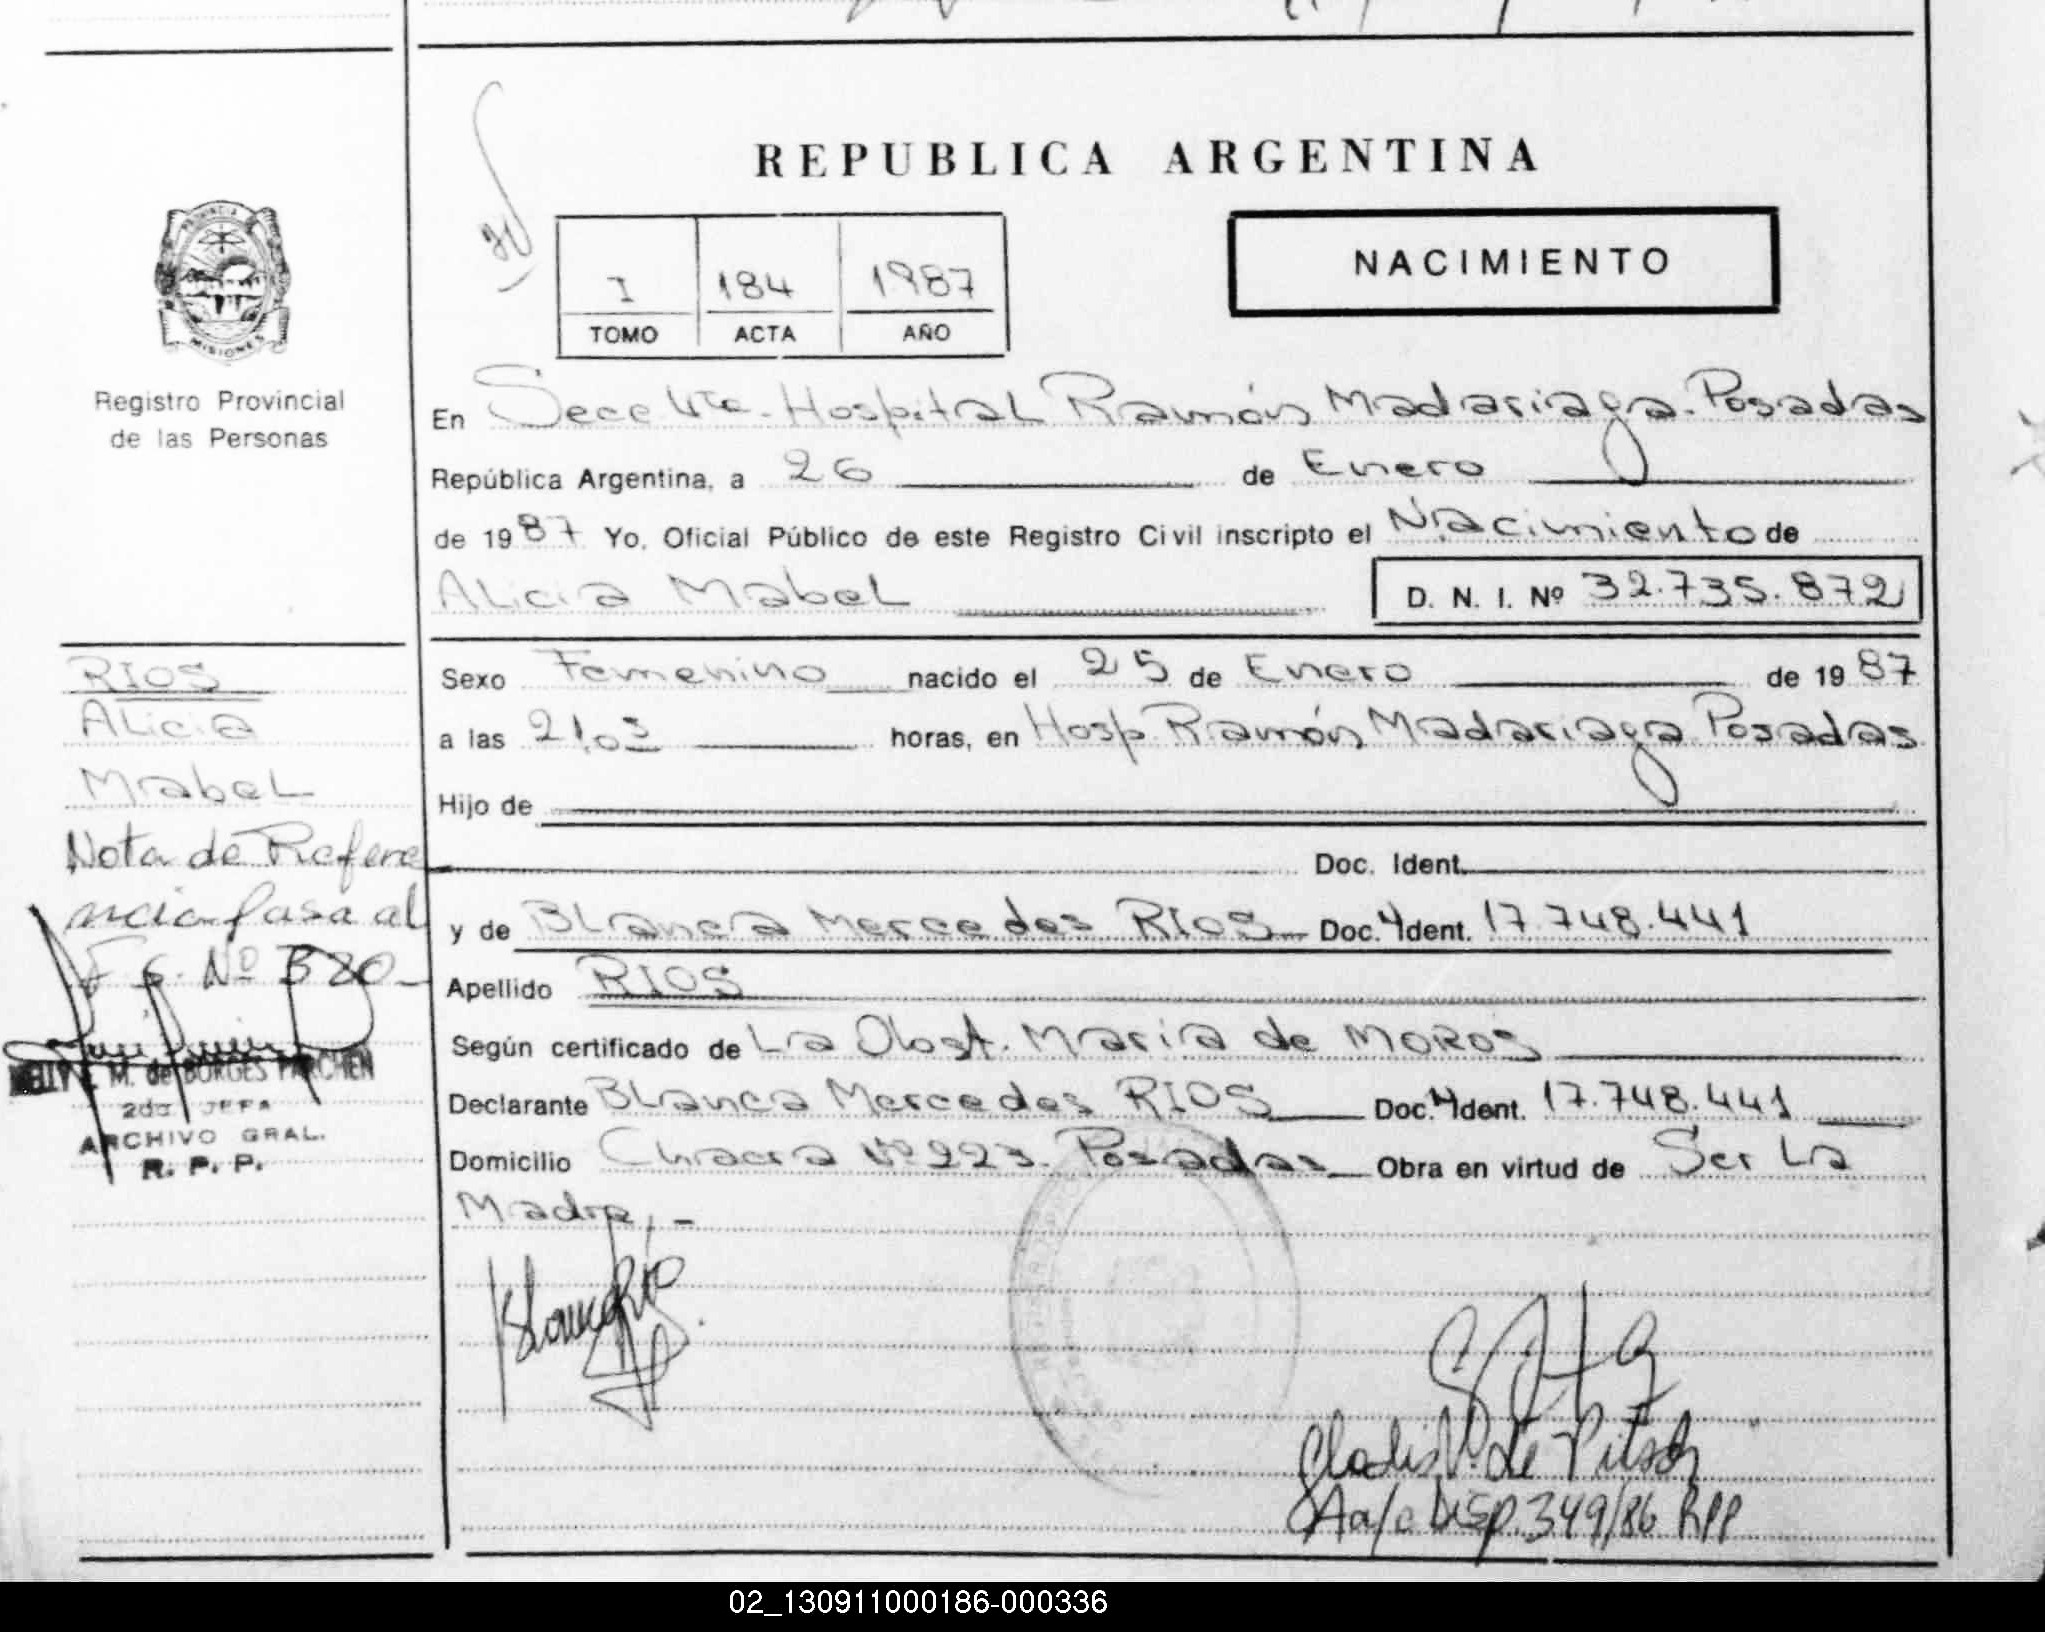 REPUBLICA ARGENTINA
NACIMIENTO
I 184 1987
TOMO ACTA AÑO
PROVINCIA
MISIONES
Registro Provincial
de las Personas
En Secc Hospital Ramón Madariaga. Posadas
República Argentina, a 26 de Enero
de 1987 Yo, Oficial Público de este Registro Civil inscripto el Nacimiento de
Alicia Mabel D. N. I. Nº 32.735.872
RIOS
Alicia
Mabel
Nota de Refere
ncia pasa al
Nº 320
M. de BORGES
2da JEFA
ARCHIVO GRAL.
R. P. P.
Sexo Femenino nacido el 25 de Enero de 1987
a las 21,05 horas, en Hosp. Ramón Madariaga Posadas
Hijo de
Doc. Ident.
y de Blanca Mercedes RIOS Doc. Ident. 17.748.441
Apellido RIOS
Según certificado de La Obst. Maria de MOROS
Declarante Blanca Mercedes RIOS Doc. Ident. 17.748.441
Domicilio Chacra Nº 223. Posadas Obra en virtud de Ser La
Madre,-
Gladis de
Aa/c Disp. 349/86 RPP
02_130911000186-000336